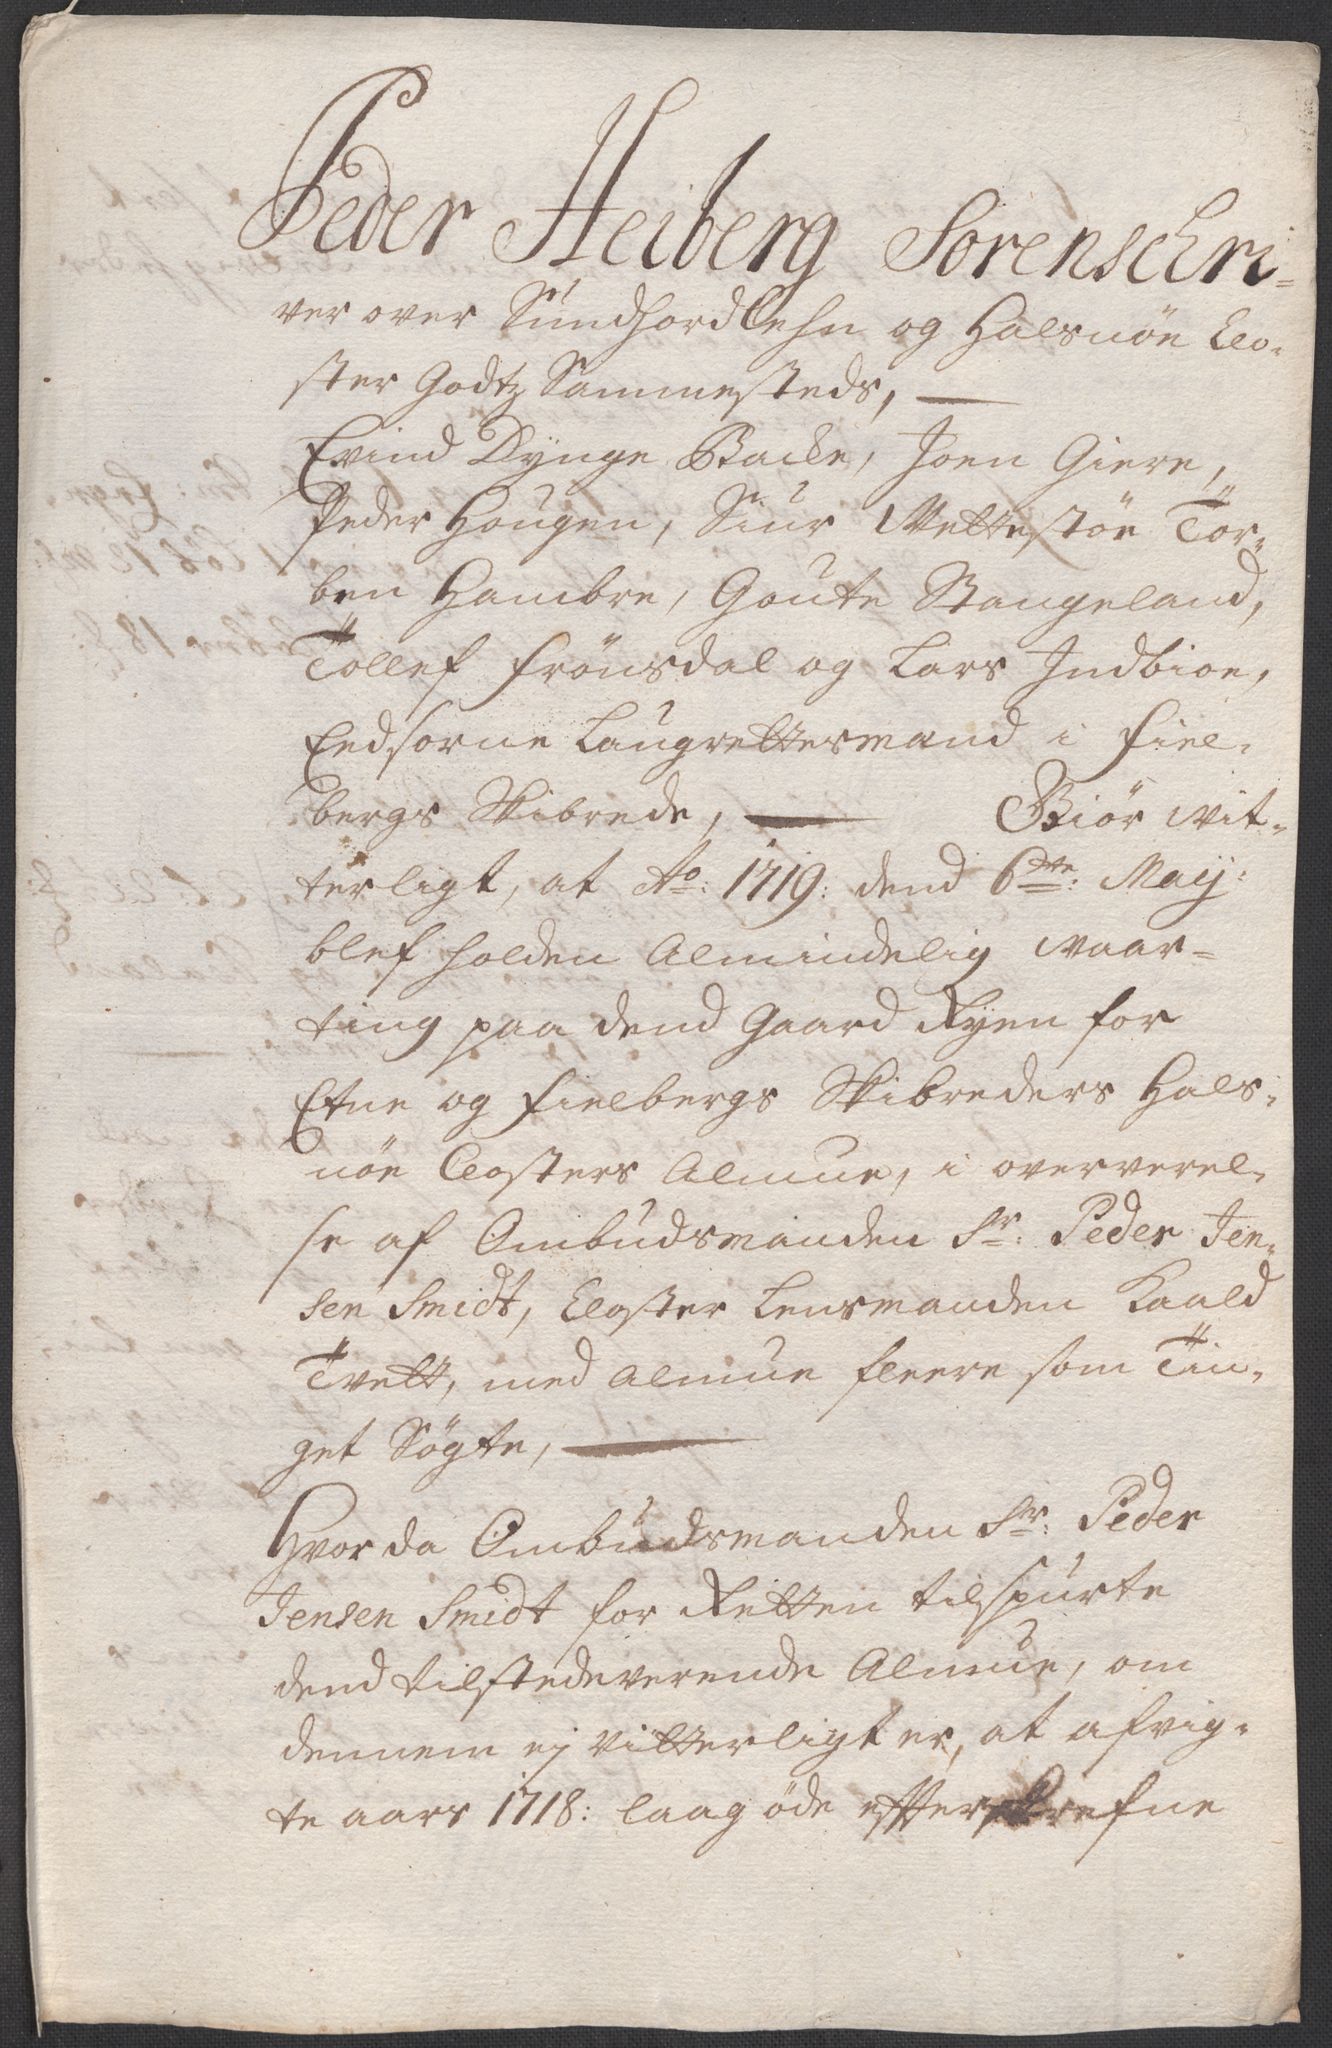 Peder Heiberg Sorenschri-
ver over Sundhordlehn og Halsnöe Clo-
ster Godtz Sammesteds,
Evind Dynge Backe, Joen Giere,
Peder Hougen, Siur Mettestöe Tor-
ben Hambre, Goute Stangeland,
Tollef Frönsdal og Lars Indbioe,
Eedsorne Laugrettesmænd i Fiel-
bergs Skibrede, Giör wit-
terligt, at Ao: 1719: dend 6te: Maij:
blef holden Almindelig waar-
ting paa dend Gaard Ryen for
Etne og Fielbergs Skibreders Hals-
nöe Closters Almue, i oververel-
se af Ombudsmanden Sr: Peder Jen-
sen Smidt, Closter Lensmanden Kaald
Tvett, med Almue fleere som Tin-
get Sögte,
Hvor da Ombudsmanden Sr: Peder
Jensen Smidt for Retten tilspurte
dend tilstedeverende Almue, om
dennem ej vitterligt er, at afvig-
te aars 1718: laag öde efterskrefne